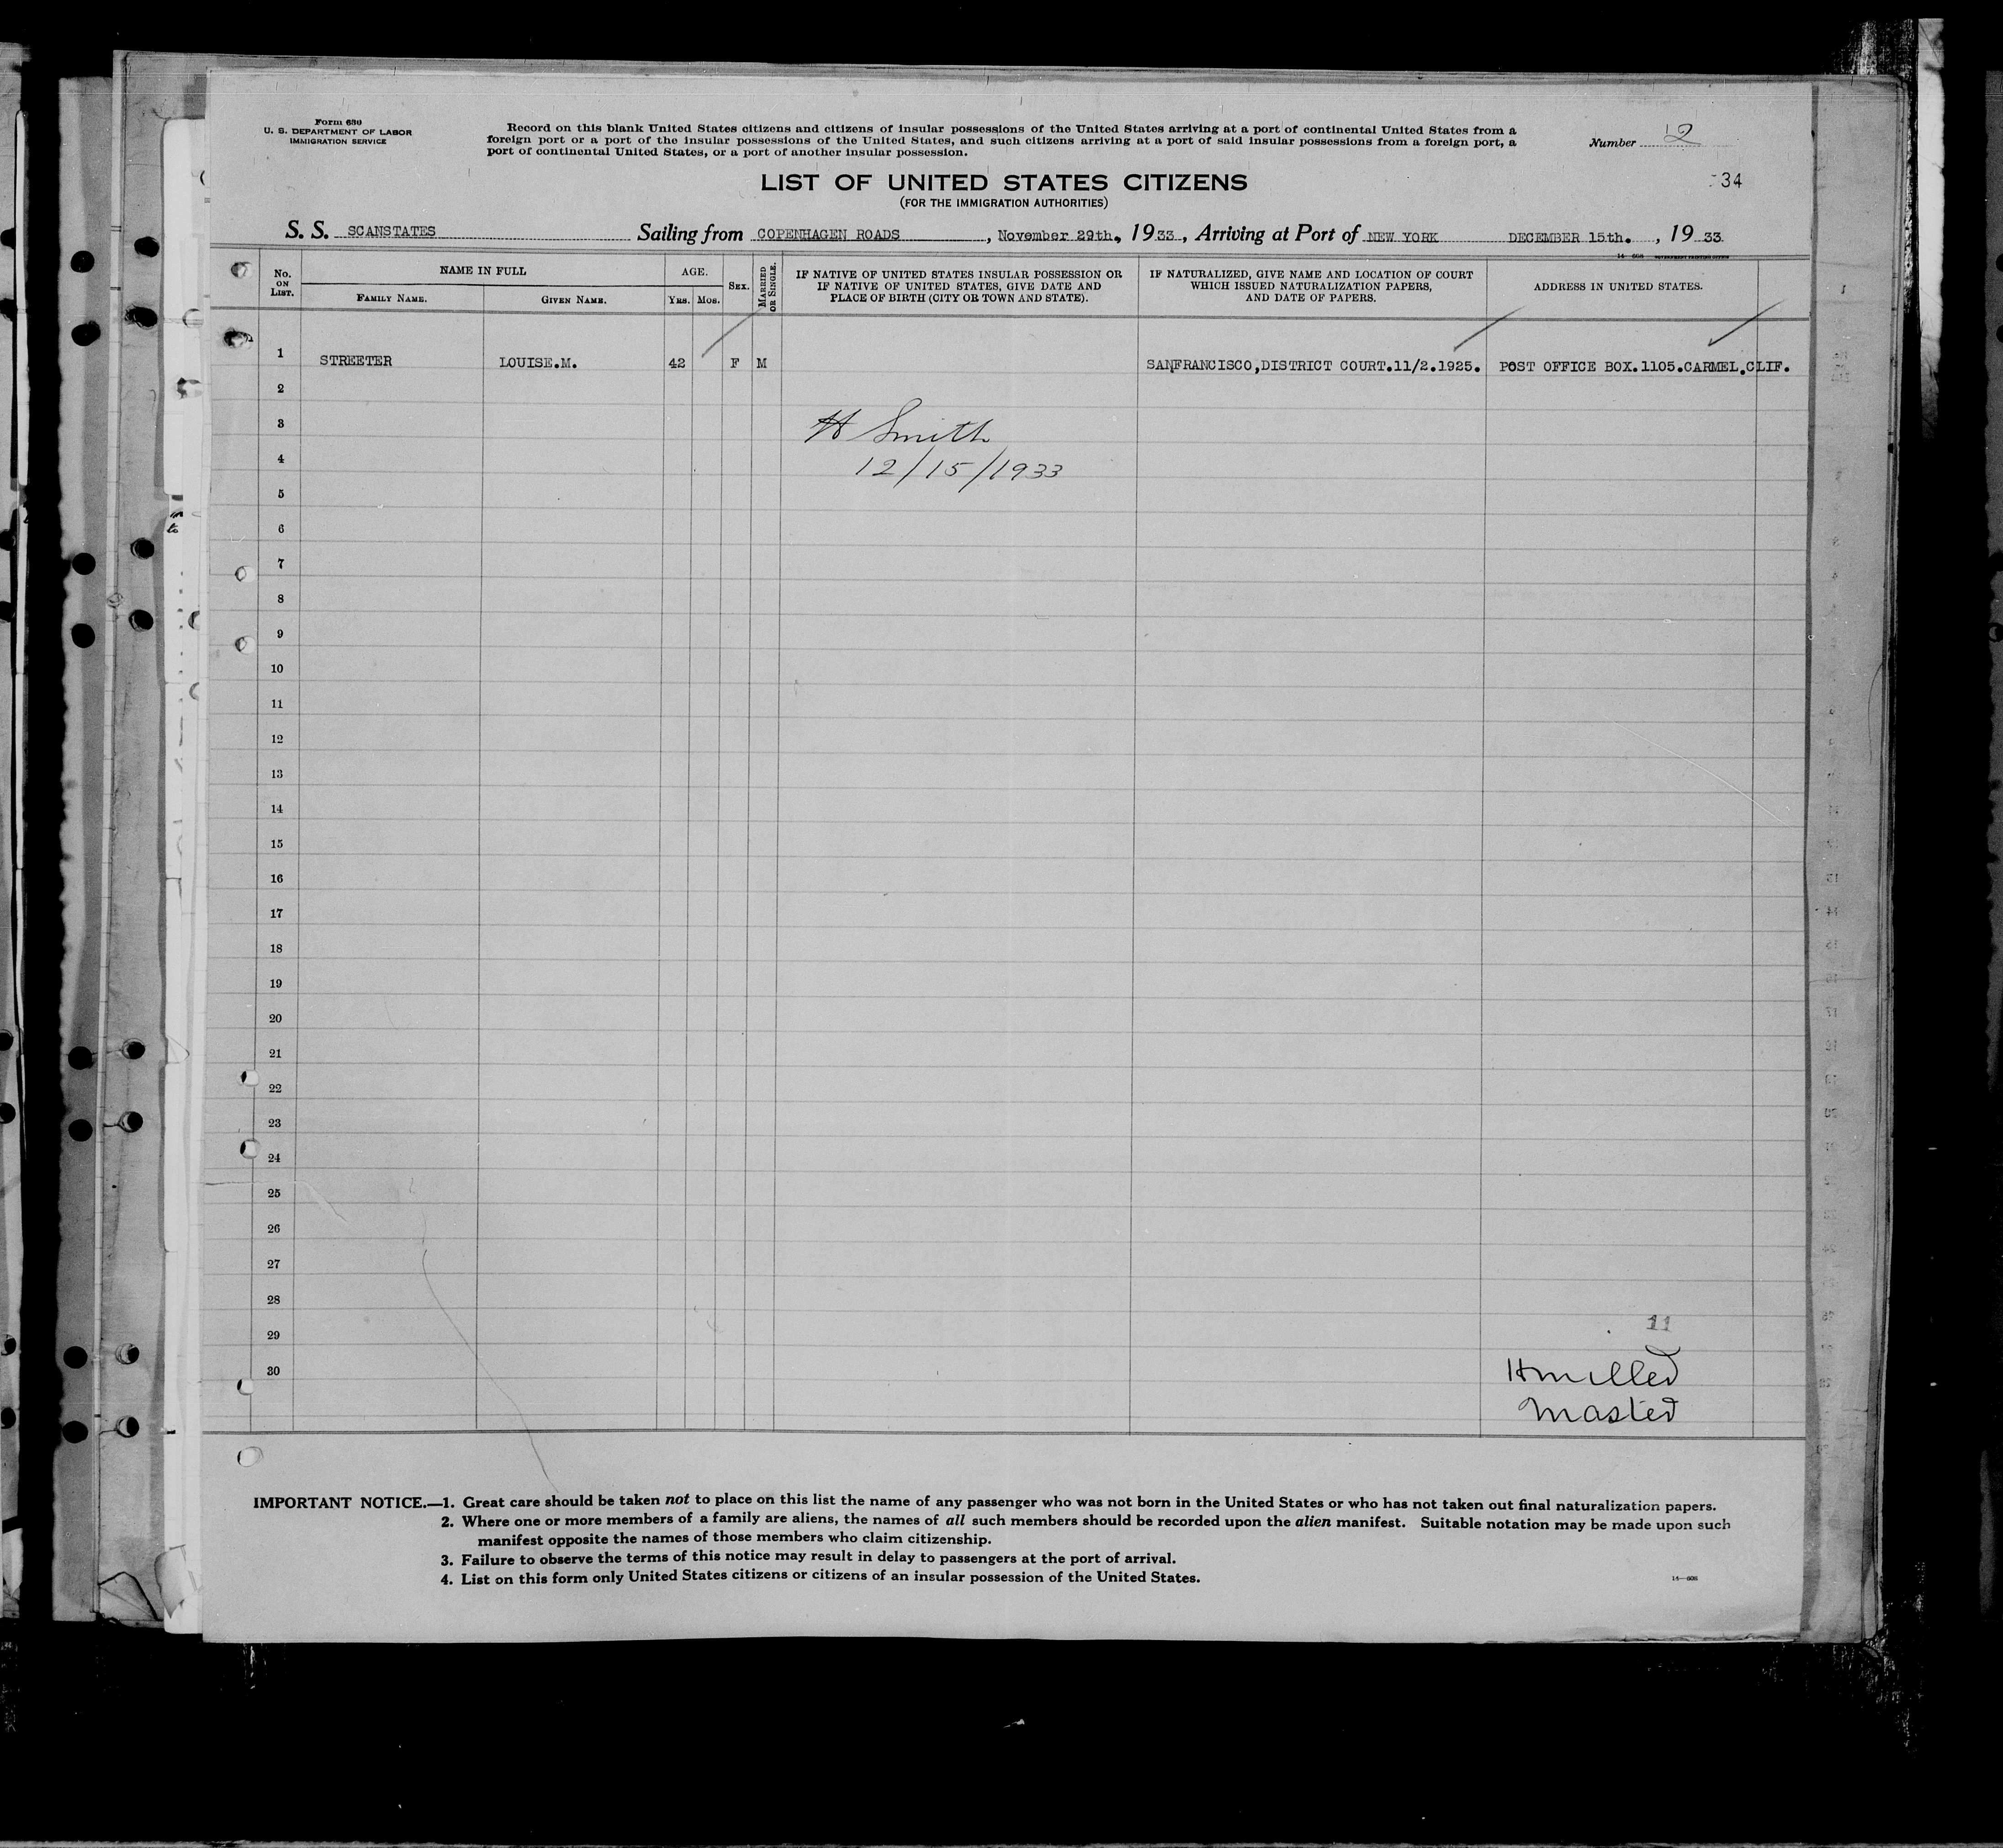 Form 630
U. S. DEPARTMENT OF LABOR
IMMIGRATION SERVICE
Record on this blank United States citizens and citizens of insular possessions of the United States arriving at a port of continental United States from a
foreign port or a port of the insular possessions of the United States, and such citizens arriving at a port of said insular possessions from a foreign port, a
port of continental United States, or a port of another insular possession.
Number 2
34
LIST OF UNITED STATES CITIZENS
(FOR THE IMMIGRATION AUTHORITIES)
S. S. SCANSTATES Sailing from COPENHAGEN ROADS, November 29th., 1933, Arriving at Port of NEW YORK DECEMBER 15th., 1933
14—608 GOVERNMENT PRINTING OFFICE
No. ON LIST.
NAME IN FULL
FAMILY NAME. GIVEN NAME.
AGE.
YRS. MOS.
SEX.
MARRIED OR SINGLE.
IF NATIVE OF UNITED STATES INSULAR POSSESSION OR
IF NATIVE OF UNITED STATES, GIVE DATE AND
PLACE OF BIRTH (CITY OR TOWN AND STATE).
IF NATURALIZED, GIVE NAME AND LOCATION OF COURT
WHICH ISSUED NATURALIZATION PAPERS,
AND DATE OF PAPERS.
ADDRESS IN UNITED STATES.
1 STREETER LOUISE.M. 42 F M SANFRANCISCO,DISTRICT COURT.11/2.1925. POST OFFICE BOX.1105.CARMEL.CLIF.
2
3 H Smith
4 12/15/1933
5
6
7
8
9
10
11
12
13
14
15
16
17
18
19
20
21
22
23
24
25
26
27
28
29 11
30
Master
IMPORTANT NOTICE.—1. Great care should be taken not to place on this list the name of any passenger who was not born in the United States or who has not taken out final naturalization papers.
2. Where one or more members of a family are aliens, the names of all such members should be recorded upon the alien manifest. Suitable notation may be made upon such
manifest opposite the names of those members who claim citizenship.
3. Failure to observe the terms of this notice may result in delay to passengers at the port of arrival.
4. List on this form only United States citizens or citizens of an insular possession of the United States.
14—608